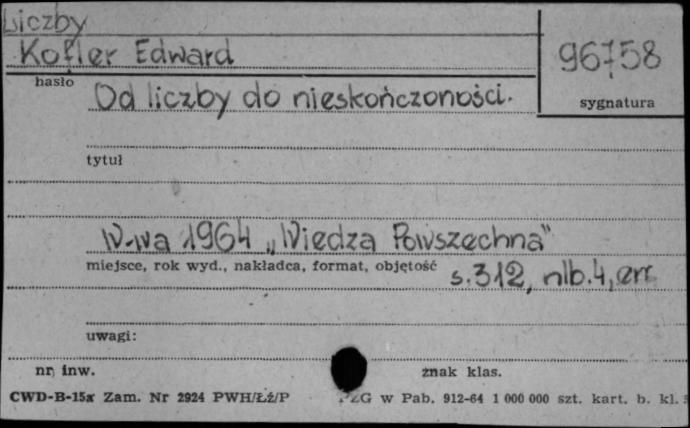 Liczby
Kofler Edward
96758
hasło
sygnatura
Od liczby do nieskończoności.
tytuł
W-wa 1964 „Wiedza Powszechna"
miejsce, rok wyd., nakładca, format, objętość
s.312, nlb.4, err
uwagi:
nr. inw.
znak klas.
CWD-B-15a Zam. Nr 2924 PWH/Łź/P
w Pab. 912-64 1 000 000 szt. kart. b. kl.